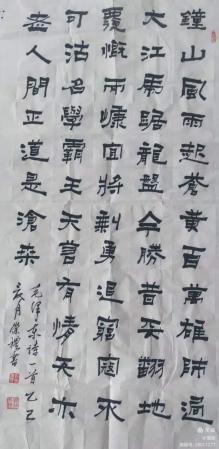 鐘山風雨起蒼黄百萬雄師過
大江虎踞龍盤今勝昔天翻地
覆慨而慷宜將剩勇追窮寇不
可沽名學霸王天若有情天亦
老人間正道是滄桑
毛澤東詩一首乙巳
夏月